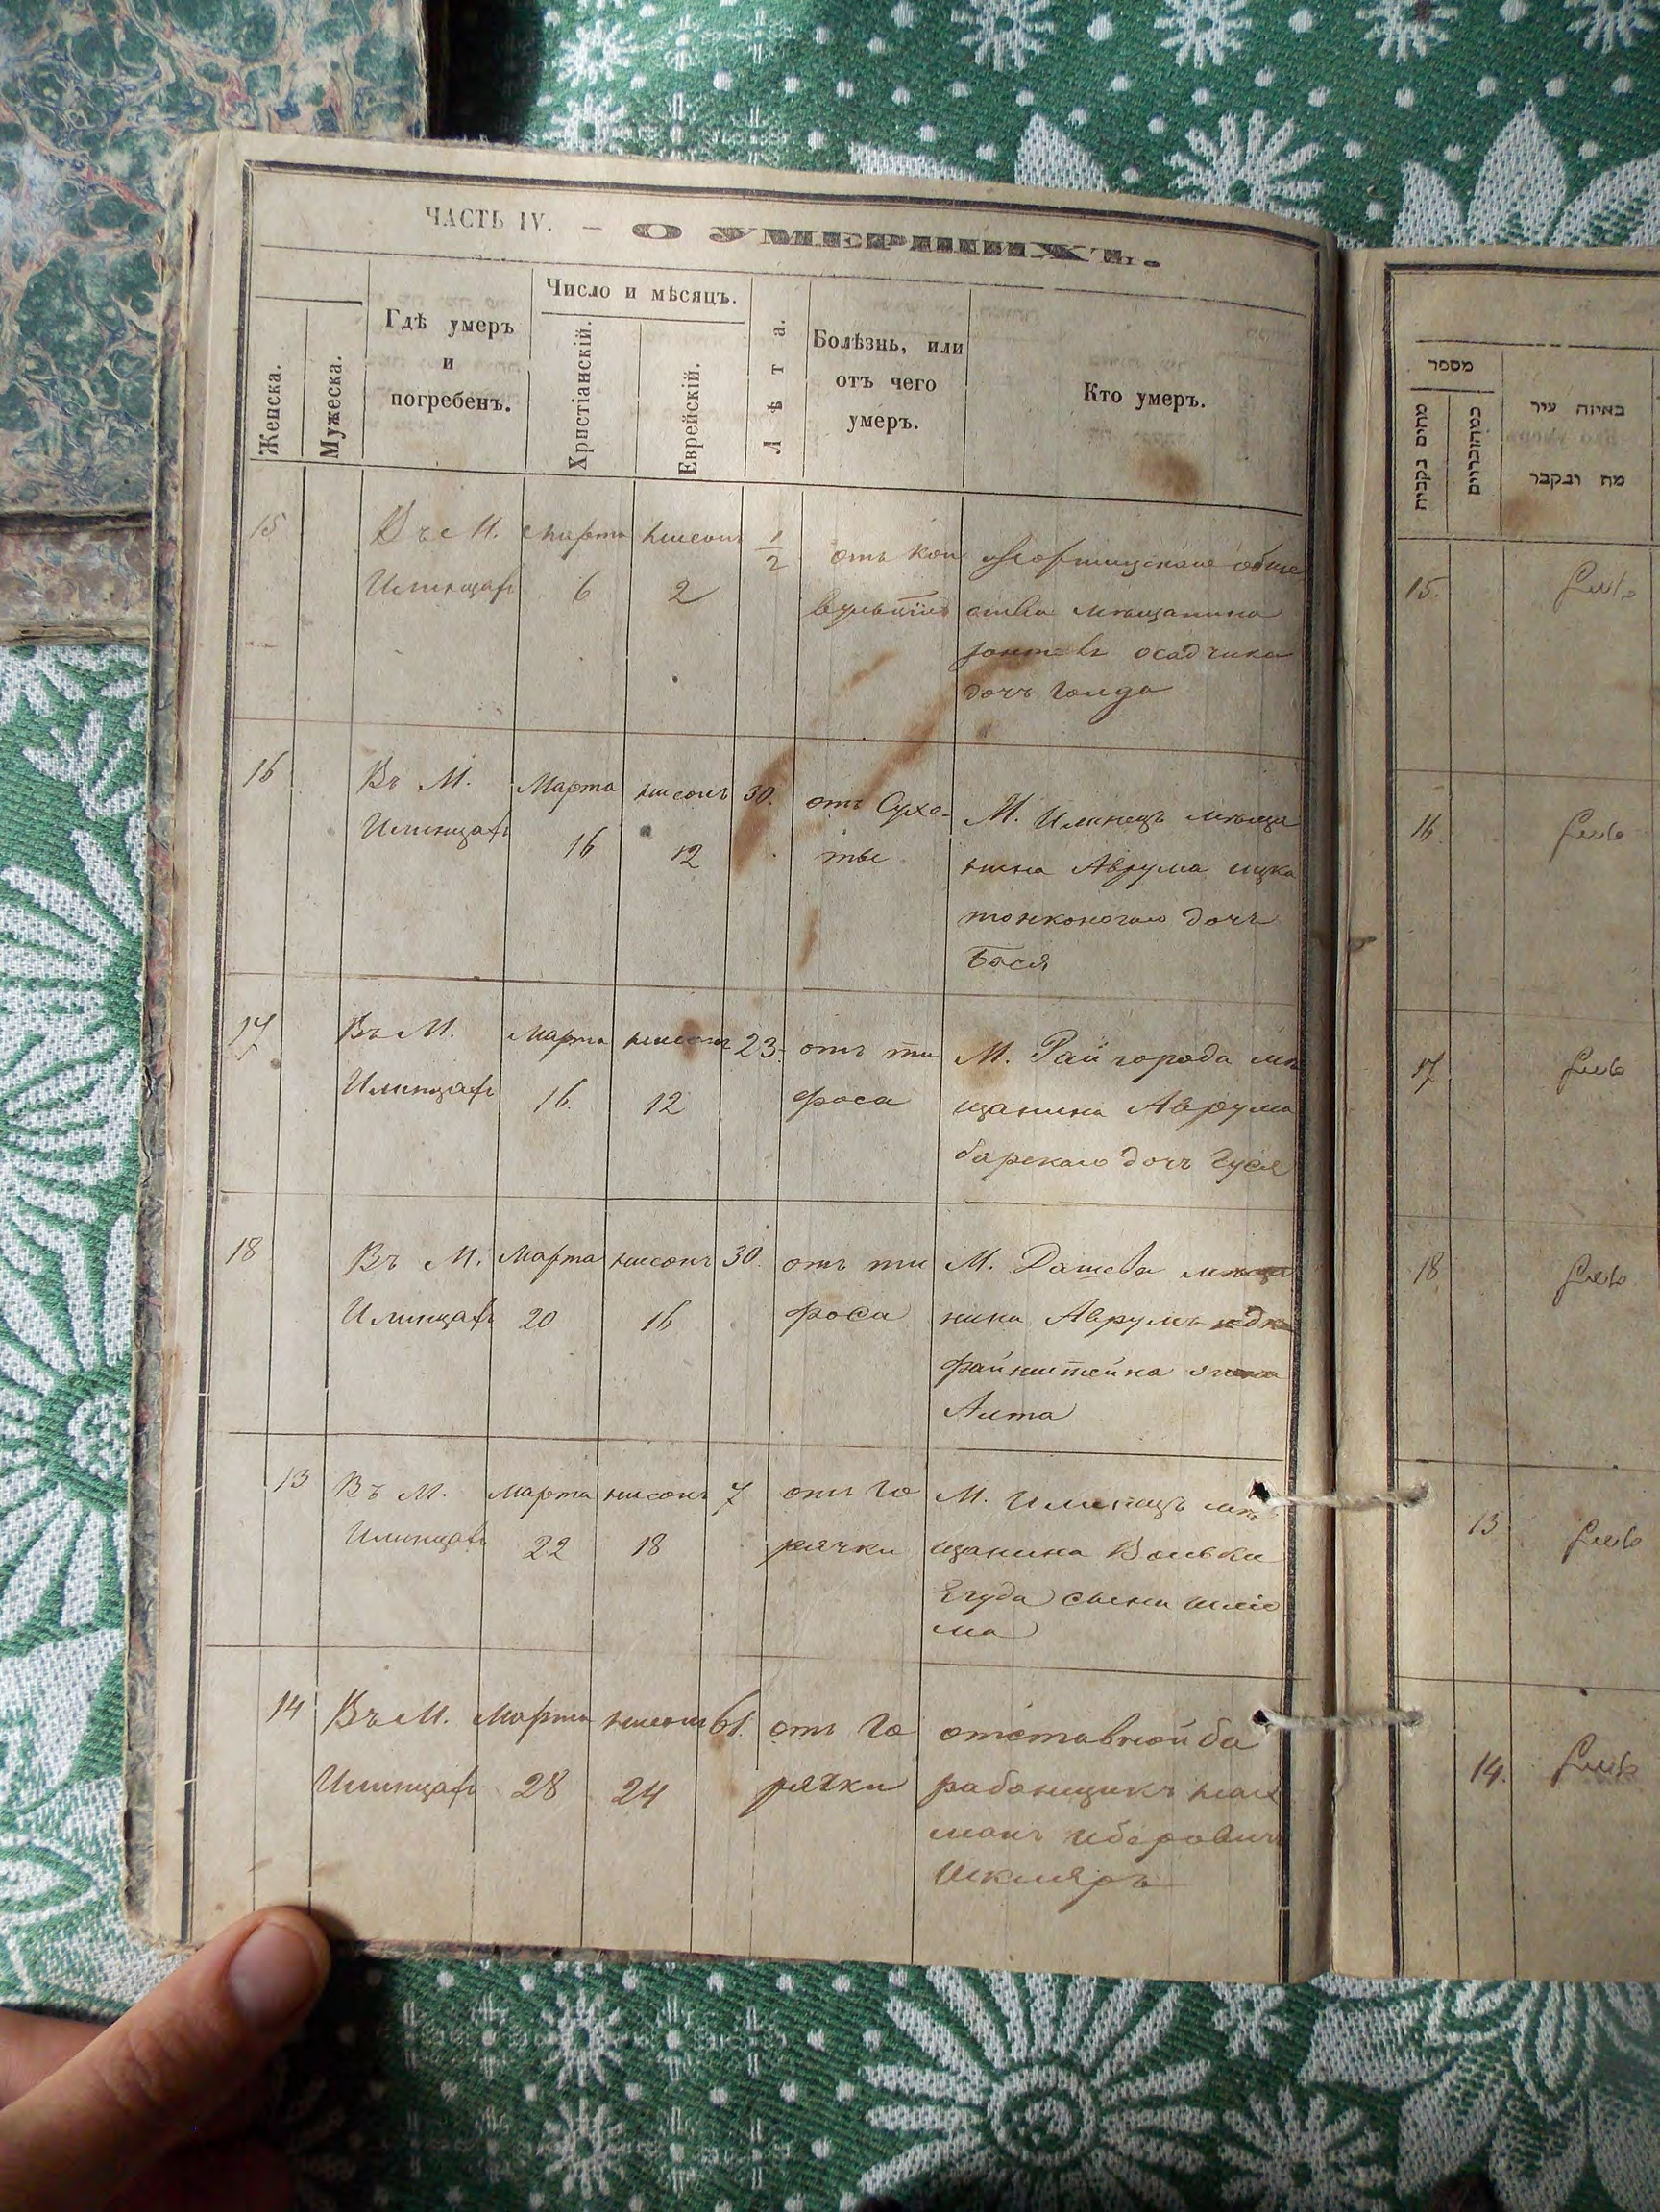 ЧАСТЬ IV. — О УМЕРШИХЪ.
Женска.
Мужеска.
Гдѣ умеръ
и
погребенъ.
Число и мѣсяцъ.
Христіанскій.
Еврейскій.
Лѣта.
Болѣзнь, или
отъ чего
умеръ.
Кто умеръ.
15
Въ М.
Илинцахъ
марта
6
нисонъ
2
1/2
отъ кон
вульсіи
обще
ства мѣщанина
осадчика
дочъ Голда
16
Въ М.
Илинцахъ
Марта
16
нисонъ
12
30.
отъ Сухо-
ты
М. Илинецъ мѣща
нина Аврума ицка
тонконогаго дочъ
Бася
17
Въ М.
Илинцахъ
марта
16.
нисонъ
12
23.
отъ ти
фоса
М. Райгорода мѣ
щанина Аврума
барскаго дочъ Гуся
18
Въ М.
Илинцахъ
Марта
20
нисонъ
16
30.
отъ ти
фоса
М. Дашева
нина Аврумъ
файнштейна
13
Въ М.
Илинцахъ
марта
22
нисонъ
18
7
отъ го
рячки
М. Илинецъ мѣ
щанина Вольки
Егуда сынъ шліо
ма
14
Въ М.
Илинцахъ
Марта
28
нисонъ
24
61.
отъ го
рячки
отставной ба
рабанщикъ
Шкляръ
מספר
מתים נקבות
באיזה עיר
מת ונקבר
15.
16.
17
18
13
14.